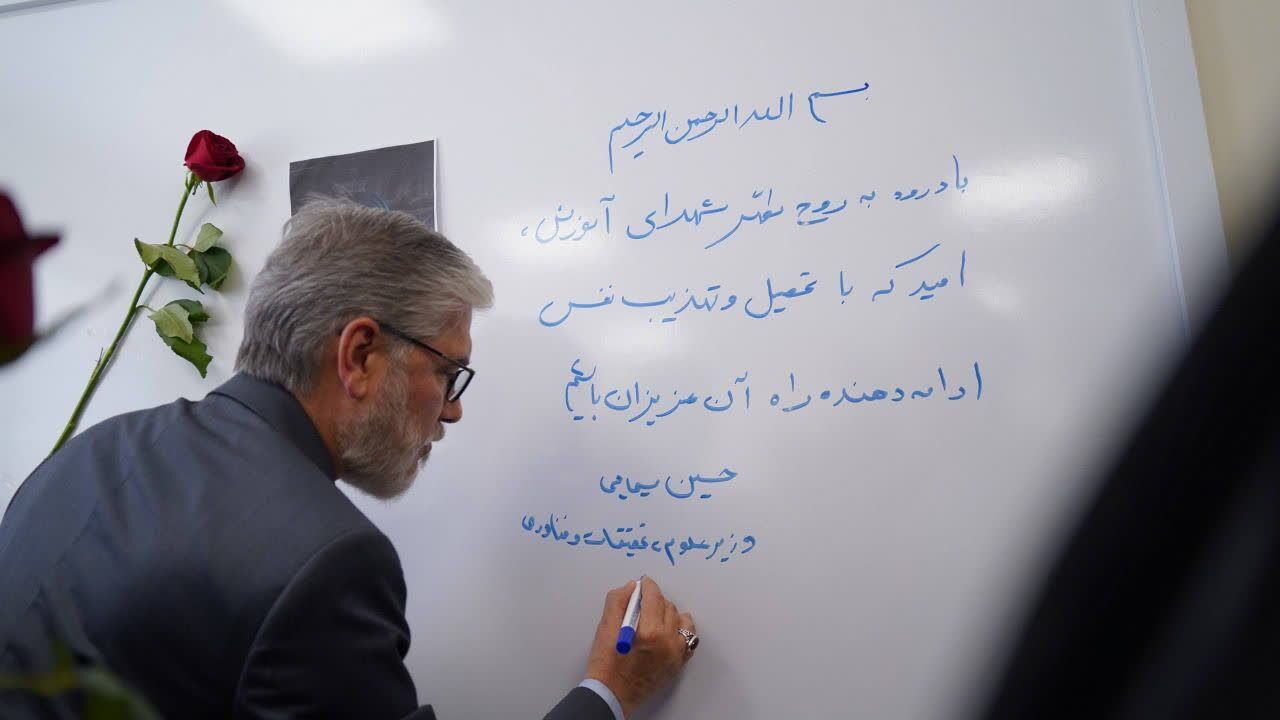 بسم الله الرحمن الرحیم
با درود به روح مطهر شهدای آموزش،
امید که با تحصیل و تهذیب نفس
ادامه دهنده راه آن عزیزان باشیم
حسین سیمایی
وزیر علوم، تحقیقات و فناوری